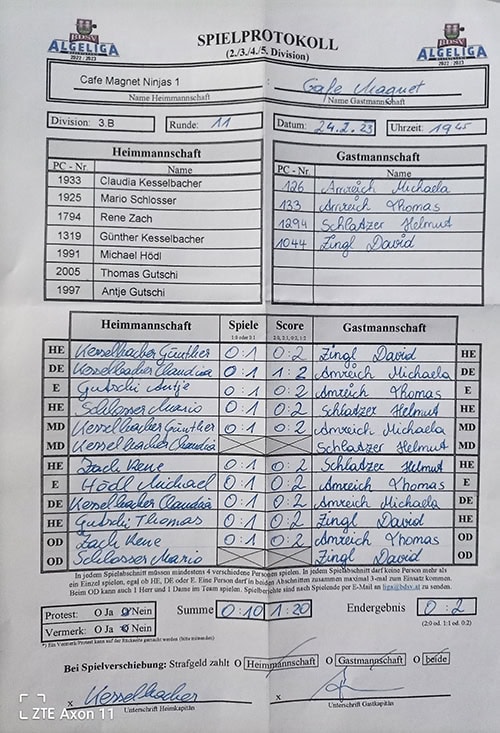 BDSV
ALGELIGA
2022 - 2023
SPIELPROTOKOLL
(2./3./4./5. Division)
BDSV
ALGELIGA
2022 - 2023
Cafe Magnet Ninjas 1 : Cafe Magnet
Name Heimmannschaft / Name Gastmannschaft
Division: 3.B Runde: 11 Datum: 24.2.23 Uhrzeit: 19 45
Heimmannschaft
PC - Nr. Name
1933 Claudia Kesselbacher
1925 Mario Schlosser
1794 Rene Zach
1319 Günther Kesselbacher
1991 Michael Hödl
2005 Thomas Gutschi
1997 Antje Gutschi
Gastmannschaft
PC - Nr. Name
126 Amreich Michaela
133 Amreich Thomas
1294 Schlatzer Helmut
1044 Zingl David
Heimmannschaft Spiele Score Gastmannschaft
1:0 oder 0:1 2:0, 2:1, 0:2, 1:2
HE Kesselbacher Günther 0:1 0:2 Zingl David HE
DE Kesselbacher Claudia 0:1 1:2 Amreich Michaela DE
E Gutschi Antje 0:1 0:2 Amreich Thomas E
HE Schlosser Mario 0:1 0:2 Schlatzer Helmut HE
MD Kesselbacher Günther 0:1 0:2 Amreich Michaela MD
MD Kesselbacher Claudia Schlatzer Helmut MD
HE Zach Rene 0:1 0:2 Schlatzer Helmut HE
E Hödl Michael 0:1 0:2 Amreich Thomas E
DE Kesselbacher Claudia 0:1 0:2 Amreich Michaela DE
HE Gutschi Thomas 0:1 0:2 Zingl David HE
OD Zach Rene 0:1 0:2 Amreich Thomas OD
OD Schlosser Mario Zingl David OD
In jedem Spielabschnitt müssen mindestens 4 verschiedene Personen spielen. In jedem Spielabschnitt darf keine Person mehr als
ein Einzel spielen, egal ob HE, DE oder E. Eine Person darf in beiden Abschnitten zusammen maximal 3-mal zum Einsatz kommen.
Beim OD kann auch 1 Herr und 1 Dame im Team spielen. Spielberichte sind nach Spielende per E-Mail an liga@bdsv.at zu senden.
Protest: O Ja O Nein Summe 0:10 1:20 Endergebnis 0:2
Vermerk: O Ja O Nein (2:0 od. 1:1 od. 0:2)
*) Ein Vermerk/Protest kann auf der Rückseite gemacht werden (bitte umwenden)
Bei Spielverschiebung: Strafgeld zahlt O Heimmannschaft O Gastmannschaft O beide
x Kesselbacher x
Unterschrift Heimkapitän Unterschrift Gastkapitän
ZTE Axon 11